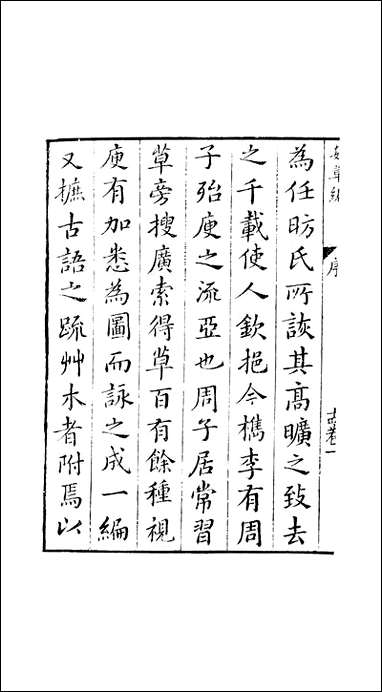 為任昉氏所該其高曠之致去
之千載使人欽挹今檇李有周
子殆庾之流亞也周子居常習
草旁搜廣索得草百有餘種視
庾有加悉為圖而詠之成一編
又摭古語之疏艸木者附焉以
序